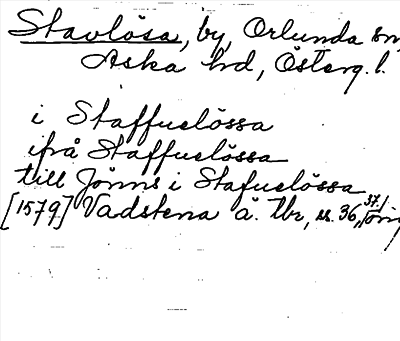 Stavlösa, by, Orlunda sn,
Aska hd, Österg. l.
i Staffuelössa
ifrå Staffuelössa
till Jönns i Stafuelössa
[1579] Vadstena ä. tbr, u. 36, 37,